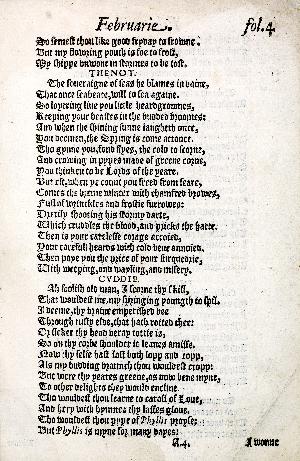 Februarie. fol.4.
So semest thou like good fryday to frowne.
But my flowring youth is foe to frost,
My shippe unwont in stormes to be tost.
THENOT.
The soueraigne of seas he blames in vaine,
That once seabeate, will to sea againe.
So loytring liue you little heardgroomes,
Keeping your beastes in the budded broomes:
And when the shining sunne laugheth once,
You deemen, the Spring is come attonce.
Tho gynne you, fond flyes, the cold to scorne,
And crowing in pypes made of greene corne,
You thinken to be Lords of the yeare.
But eft, when ye count you freed from feare,
Comes the breme winter with chamfred browes,
Full of wrinckles and frostie furrowes:
Drerily shooting his stormy darte,
Which cruddles the blood, and pricks the harte.
Then is your carelesse corage accoied,
Your carefull heards with cold bene annoied.
Then paye you the price of your surquedrie,
With weeping, and wayling, and misery.
CVDDIE.
Ah foolish old man, I scorne thy skill,
That wouldest me, my springing youngth to spil.
I deeme, thy braine emperished bee
Through rusty elde, that hath rotted thee:
Or sicker thy head veray tottie is,
So on thy corbe shoulder it leanes amisse.
Now thy selfe hast lost both lopp and topp,
Als my budding braunch thou wouldest cropp:
But were thy yeares greene, as now bene myne,
To other delights they would encline.
Tho wouldest thou learne to caroll of Loue,
And hery with hymnes thy lasses gloue.
Tho wouldest thou pype of Phyllis prayse:
But Phyllis is myne for many dayes:
A.4. I wonne